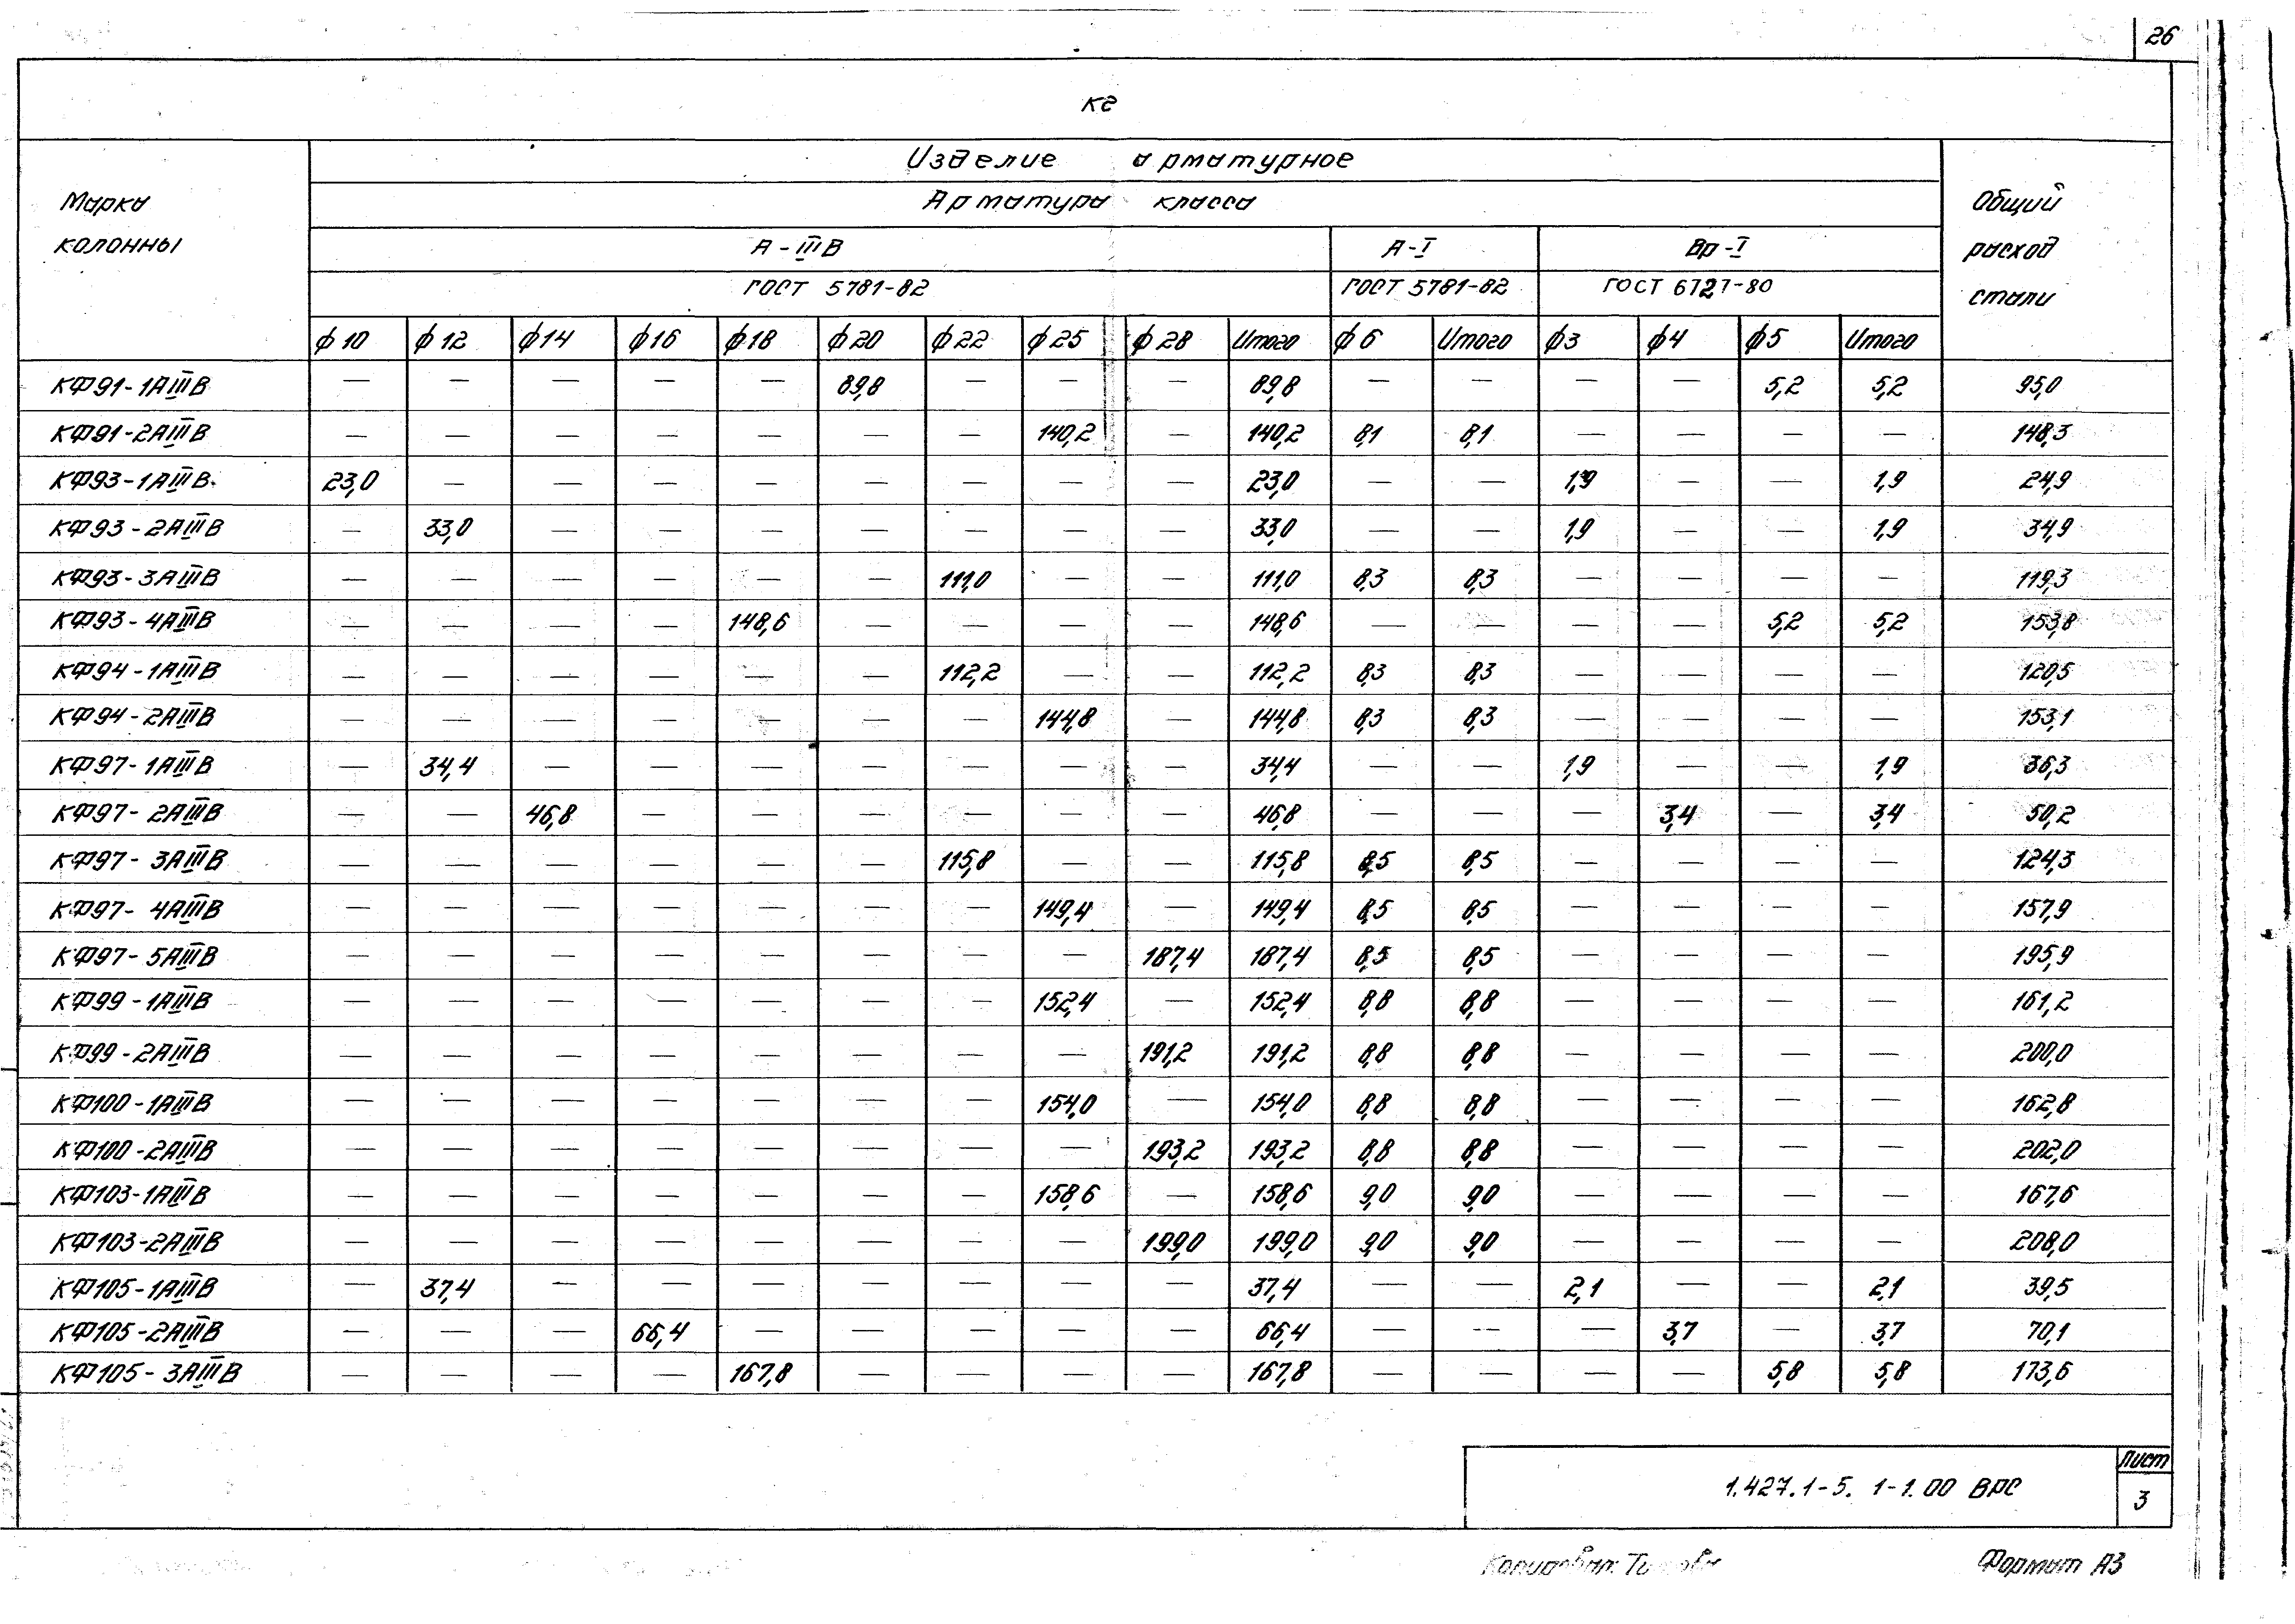 26
кг
Марка колонны | Изделие арматурное | Общий расход стали
Арматура класса
А-IIIВ | А-I | Вр-I
ГОСТ 5781-82 | ГОСТ 5781-82 | ГОСТ 6727-80
ф10 | ф12 | ф14 | ф16 | ф18 | ф20 | ф22 | ф25 | ф28 | Итого | ф6 | Итого | ф3 | ф4 | ф5 | Итого
КФ91-1АIIIВ | — | — | — | — | — | 89,8 | — | — | — | 89,8 | — | — | — | — | 5,2 | 5,2 | 95,0
КФ91-2АIIIВ | — | — | — | — | — | — | — | 140,2 | — | 140,2 | 8,1 | 8,1 | — | — | — | — | 148,3
КФ93-1АIIIВ | 23,0 | — | — | — | — | — | — | — | — | 23,0 | — | — | 1,9 | — | — | 1,9 | 24,9
КФ93-2АIIIВ | — | 33,0 | — | — | — | — | — | — | — | 33,0 | — | — | 1,9 | — | — | 1,9 | 34,9
КФ93-3АIIIВ | — | — | — | — | — | — | 111,0 | — | — | 111,0 | 8,3 | 8,3 | — | — | — | — | 119,3
КФ93-4АIIIВ | — | — | — | — | 148,6 | — | — | — | — | 148,6 | — | — | — | — | 5,2 | 5,2 | 153,8
КФ94-1АIIIВ | — | — | — | — | — | — | 112,2 | — | — | 112,2 | 8,3 | 8,3 | — | — | — | — | 120,5
КФ94-2АIIIВ | — | — | — | — | — | — | — | 144,8 | — | 144,8 | 8,3 | 8,3 | — | — | — | — | 153,1
КФ97-1АIIIВ | — | 34,4 | — | — | — | — | — | — | — | 34,4 | — | — | 1,9 | — | — | 1,9 | 36,3
КФ97-2АIIIВ | — | — | 46,8 | — | — | — | — | — | — | 46,8 | — | — | — | 3,4 | — | 3,4 | 50,2
КФ97-3АIIIВ | — | — | — | — | — | — | 115,8 | — | — | 115,8 | 8,5 | 8,5 | — | — | — | — | 124,3
КФ97-4АIIIВ | — | — | — | — | — | — | — | 149,4 | — | 149,4 | 8,5 | 8,5 | — | — | — | — | 157,9
КФ97-5АIIIВ | — | — | — | — | — | — | — | — | 187,4 | 187,4 | 8,5 | 8,5 | — | — | — | — | 195,9
КФ99-1АIIIВ | — | — | — | — | — | — | — | 152,4 | — | 152,4 | 8,8 | 8,8 | — | — | — | — | 161,2
КФ99-2АIIIВ | — | — | — | — | — | — | — | — | 191,2 | 191,2 | 8,8 | 8,8 | — | — | — | — | 200,0
КФ100-1АIIIВ | — | — | — | — | — | — | — | 154,0 | — | 154,0 | 8,8 | 8,8 | — | — | — | — | 162,8
КФ100-2АIIIВ | — | — | — | — | — | — | — | — | 193,2 | 193,2 | 8,8 | 8,8 | — | — | — | — | 202,0
КФ103-1АIIIВ | — | — | — | — | — | — | — | 158,6 | — | 158,6 | 9,0 | 9,0 | — | — | — | — | 167,6
КФ103-2АIIIВ | — | — | — | — | — | — | — | — | 199,0 | 199,0 | 9,0 | 9,0 | — | — | — | — | 208,0
КФ105-1АIIIВ | — | 37,4 | — | — | — | — | — | — | — | 37,4 | — | — | 2,1 | — | — | 2,1 | 39,5
КФ105-2АIIIВ | — | — | — | 66,4 | — | — | — | — | — | 66,4 | — | — | — | 3,7 | — | 3,7 | 70,1
КФ105-3АIIIВ | — | — | — | — | 167,8 | — | — | — | — | 167,8 | — | — | — | — | 5,8 | 5,8 | 173,6
1.427.1-5. 1-1.00 ВРС
Лист
3
Копировал:
Формат А3